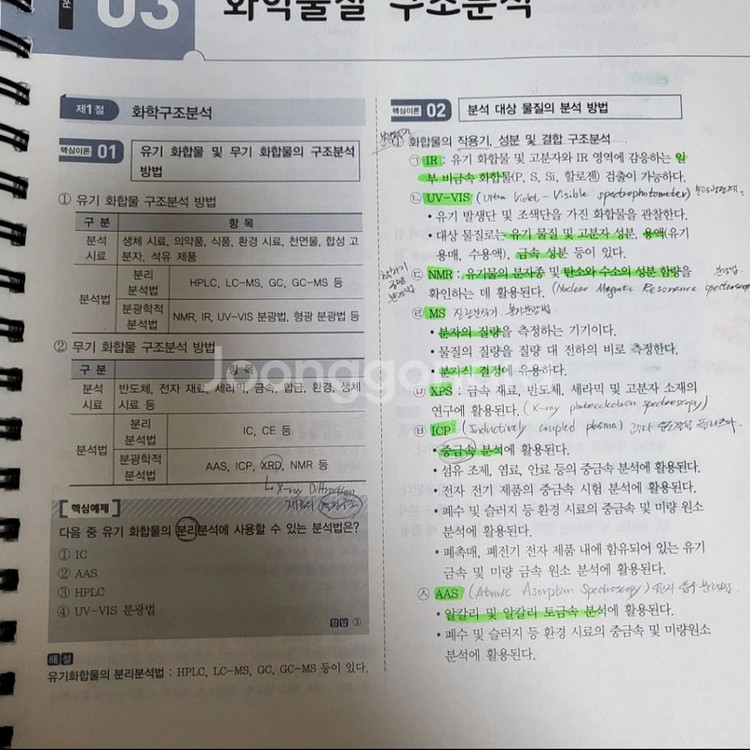 03 화학물질 구조분석
제1절 화학구조분석
핵심이론 01 유기 화합물 및 무기 화합물의 구조분석
방법
① 유기 화합물 구조분석 방법
구 분 항 목
분석 시료 생체 시료, 의약품, 식품, 환경 시료, 천연물, 합성 고
분자, 석유 제품
분석법 분리 분석법 HPLC, LC-MS, GC, GC-MS 등
분광학적 분석법 NMR, IR, UV-VIS 분광법, 형광 분광법 등
② 무기 화합물 구조분석 방법
구 분 항 목
분석 시료 반도체, 전자 재료, 세라믹, 금속, 합금, 환경, 생체
시료 등
분석법 분리 분석법 IC, CE 등
분광학적 분석법 AAS, ICP, XRD, NMR 등
X-ray Diffraction
핵심예제
다음 중 유기 화합물의 분리분석에 사용할 수 있는 분석법은?
① IC
② AAS
③ HPLC
④ UV-VIS 분광법
정답 ③
해설
유기화합물의 분리분석법 : HPLC, LC-MS, GC, GC-MS 등이 있다.
핵심이론 02 분석 대상 물질의 분석 방법
화합물의 작용기, 성분 및 결합 구조분석
㉠ IR : 유기 화합물 및 고분자와 IR 영역에 감응하는 일
부 비금속 화합물(P, S, Si, 할로겐) 검출이 가능하다.
㉡ UV-VIS (Ultra Violet - Visible spectrophotometer)
• 유기 발색단 및 조색단을 가진 화합물을 관찰한다.
• 대상 물질로는 유기 물질 및 고분자 성분, 용액(유기
용매, 수용액), 금속 성분 등이 있다.
㉢ NMR : 유기물의 분자종 및 탄소와 수소의 성분 함량을
확인하는 데 활용된다. (Nuclear Magnetic Resonance spectroscopy
㉣ MS 질량분석기
• 분자의 질량을 측정하는 기기이다.
• 물질의 질량을 질량 대 전하의 비로 측정한다.
• 분자식 결정에 유용하다.
㉤ XPS : 금속 재료, 반도체, 세라믹 및 고분자 소재의
연구에 활용된다. (X-ray photoelectron spectroscopy)
㉥ ICP (Inductively coupled plasma)
• 중금속 분석에 활용된다.
• 섬유 조제, 염료, 안료 등의 중금속 분석에 활용된다.
• 전자 전기 제품의 중금속 시험 분석에 활용된다.
• 폐수 및 슬러지 등 환경 시료의 중금속 및 미량 원소
분석에 활용된다.
• 폐촉매, 폐전기 전자 제품 내에 함유되어 있는 유기
금속 및 미량 금속 원소 분석에 활용된다.
㉦ AAS (Atomic Asorption Spectroscopy)
• 알칼리 및 알칼리 토금속 분석에 활용된다.
• 폐수 및 슬러지 등 환경 시료의 중금속 및 미량원소
분석에 활용된다.